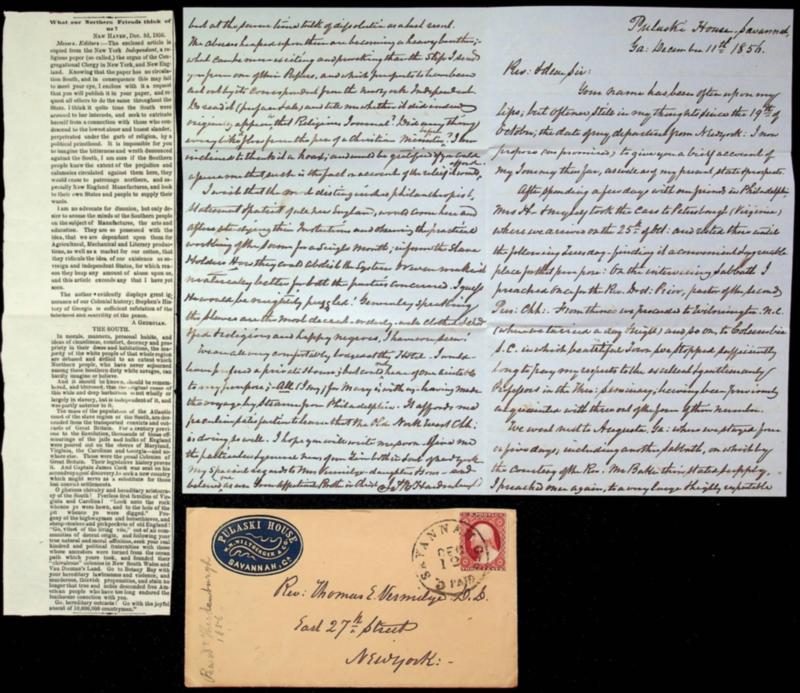 What our Northern Friends think of
us?
NEW HAVEN, Dec. 3d, 1856.
Messrs. Editors:—The enclosed article is
copied from the New York Independent, a re-
ligious paper (so called,) the organ of the Con-
gregational Clergy in New York, and New Eng-
land. Knowing that the paper has no circula-
tion South, and in consequence this may fail
to meet your eye, I enclose with it a request
that you will publish it in your paper, and re-
quest all others to do the same throughout the
State. I think it quite time the South were
aroused to her interests, and seek to extricate
herself from a connection with those who con-
descend to the lowest abuse and basest slander,
perpetrated under the garb of religion, by a
political priesthood. It is impossible for you
to imagine the bitterness and wrath denounced
against the South, and I am sure if the Southern
people knew the extent of the prejudice and
calumnies circulated against them here, they
would cease to patronage northern, and es-
pecially New England Manufactures, and look
to their own States and people to supply their
wants.
I am no advocate for disunion, but only de-
sire to arouse the minds of the Southern people
on the subject of Manufactures, the arts and
education. They are so possessed with the
idea, that we are dependent upon them for
Agricultural, Mechanical and Literary produc-
tions, as well as a market for our cotton, that
they ridicule the idea of our existence as so-
vereign and independent States, for which rea-
son they heap any amount of abuse upon us,
and this article exceeds any that I have yet
seen.
The author evidently displays great ig-
norance of our Colonial history; Stephen's His-
tory of Georgia is sufficient refutation of the
falsehood and scurrility of the piece.
A GEORGIAN.
THE SOUTH.
In morals, manners, personal habits, and
ideas of cleanliness, comfort, decency and pro-
priety in their dress and habitations, the ma-
jority of the white people of that whole region
are debased and drilled to an extent which
Northern people, who have never sojourned
among these Southern dirty white savages, can
hardly imagine or believe.
And it should be known, should be remem-
bered, and blazoned, that the original cause of
this wide and deep barbarism is not wholly or
largely in slavery, but is independent of it, and
was partly anterior to it.
The mass of the population of the Atlantic
coast of the slave region of the South, are des-
cended from the transported convicts and out-
casts of Great Britain. For a century previ-
ous to the Revolution, thousands of those off-
scourings of the jails and hulks of England
were poured out on the shores of Maryland,
Virginia, the Carolinas and Georgia—and no-
where else. Those were the penal Colonies of
Great Britain. Their legislative history proves
it. And Captain James Cook was sent on his
second voyage of discovery to seek out a region
which might serve as a substitute for those
lost convict settlements.
O glorious chivalry and hereditary aristocra-
cy of the South! Peerless first families of Vir-
ginia and Carolina! "Look unto the rock
whence ye were hewn, and to the hole of the
pit whence ye were digged." Pro-
geny of the highwaymen and horsethieves, and
sheep-stealers and pickpockets of old England!
"Go, vilest of the living vile," out of all com-
munities of decent origin, and following your
true natural and moral affinities, seek your real
kindred and political fraternities with those
whose ancestors were turned from the ocean
path which yours took, and founded their
"chivalrous" colonies in New South Wales and
Van Dieman's Land. Go to Botany Bay with
your hereditary lawlessness and violence, and
murderous, thievish propensities, and stain no
longer that true and noble descended free Am-
erican people who have too long endured the
loathsome connection with you.
Go, hereditary outcasts! Go with the joyful
assent of 10,000,000 countrymen."
but at the same time talk of dissolution as a last resort.
The abuses heaped upon them are becoming a heavy burthen;
what can be more exciting and provoking than the Slip I send
you from one of their Papers, and which purports to have been
cut out by its Correspondent from the New york Independent.
Do read it (prefer and all) and tell me whether it did indeed
originally appear in that Religious Journal! Did any thing
every like flow from the pen of a Christian Minister? I am
inclined to think it a hoax; and would be gratified if you could
assure me that such is the fact on account of the religion
I wish that the most distinguished philanthropist,
Statesman & patriot of all new England, would come here and
after studying their Institutions and observing the practical
working of the same for a single Month, inform the Slave
Holders how they could abolish the System
materially better for both the parties concerned. I guess
he would be completely puzzled! Generally speaking
the slaves are the most decent, orderly, well clothed & fed
and religious and happy negroes, I have ever seen!
We are all very comfortably lodged at this Hotel. I would
have preferred a private House; but could hear of none suitable
to my purpose; All (I say) for Mary is with us, having made
the voyage by Steamer from Philadelphia. It affords me
peculiar satisfaction to learn that the Old North West Chh.
is doing so well. I hope you will write me soon & give me
the particulars & general news of our Zion both in & out of New york
My special regards to Mrs Vermilye daughter & sons—and
believe me one Your affectionate Bro. in Christ Jas. B. Hardenbergh
Pulaski House, Savannah,
Ga: December 11th 1856.
Rev: & dear Sir:
Your name has been often upon my
lips, but oftener still in my thoughts since the 19th of
October, the date of my departure from New york. I now
propose (as promised) to give you a brief account of
my Journey thus far, as well as of my present state & prospects.
After spending a few days with our friends in Philadelphia
Mrs H. & myself took the Cars to Petersburgh (Virginia)
where we arrived on the 25th of Oct: and rested there until
the following Tuesday finding it a convenient & agreeable
place for that purpose. On the intervening Sabbath I
preached once for the Rev. Dr Pryor, pastor of the second
Pres: Chh: From thence we proceeded to Wilmington, N.C.
(where we tarried a day & night) and so on, to Columbia
S.C. in which beautiful Town we stopped sufficiently
long to pay my respects to the excellent & gentlemanly
Professors in the Theo: Seminary; having been previously
acquainted with three out of the four of their number.
We went next to Augusta, Ga: where we stayed four
or five days, including another Sabbath, on which by
the courtesy of the Rev. Mr Baker, their stated supply,
I preached once again, to a very large & highly respectable
PULASKI HOUSE
SAVANNAH, GA.
SAVANNAH GA.
DEC
12
PAID
Rev: Thomas E. Vermilye D.D.
East 27th Street
New york:-
Rev Dr Hardenburgh
1856